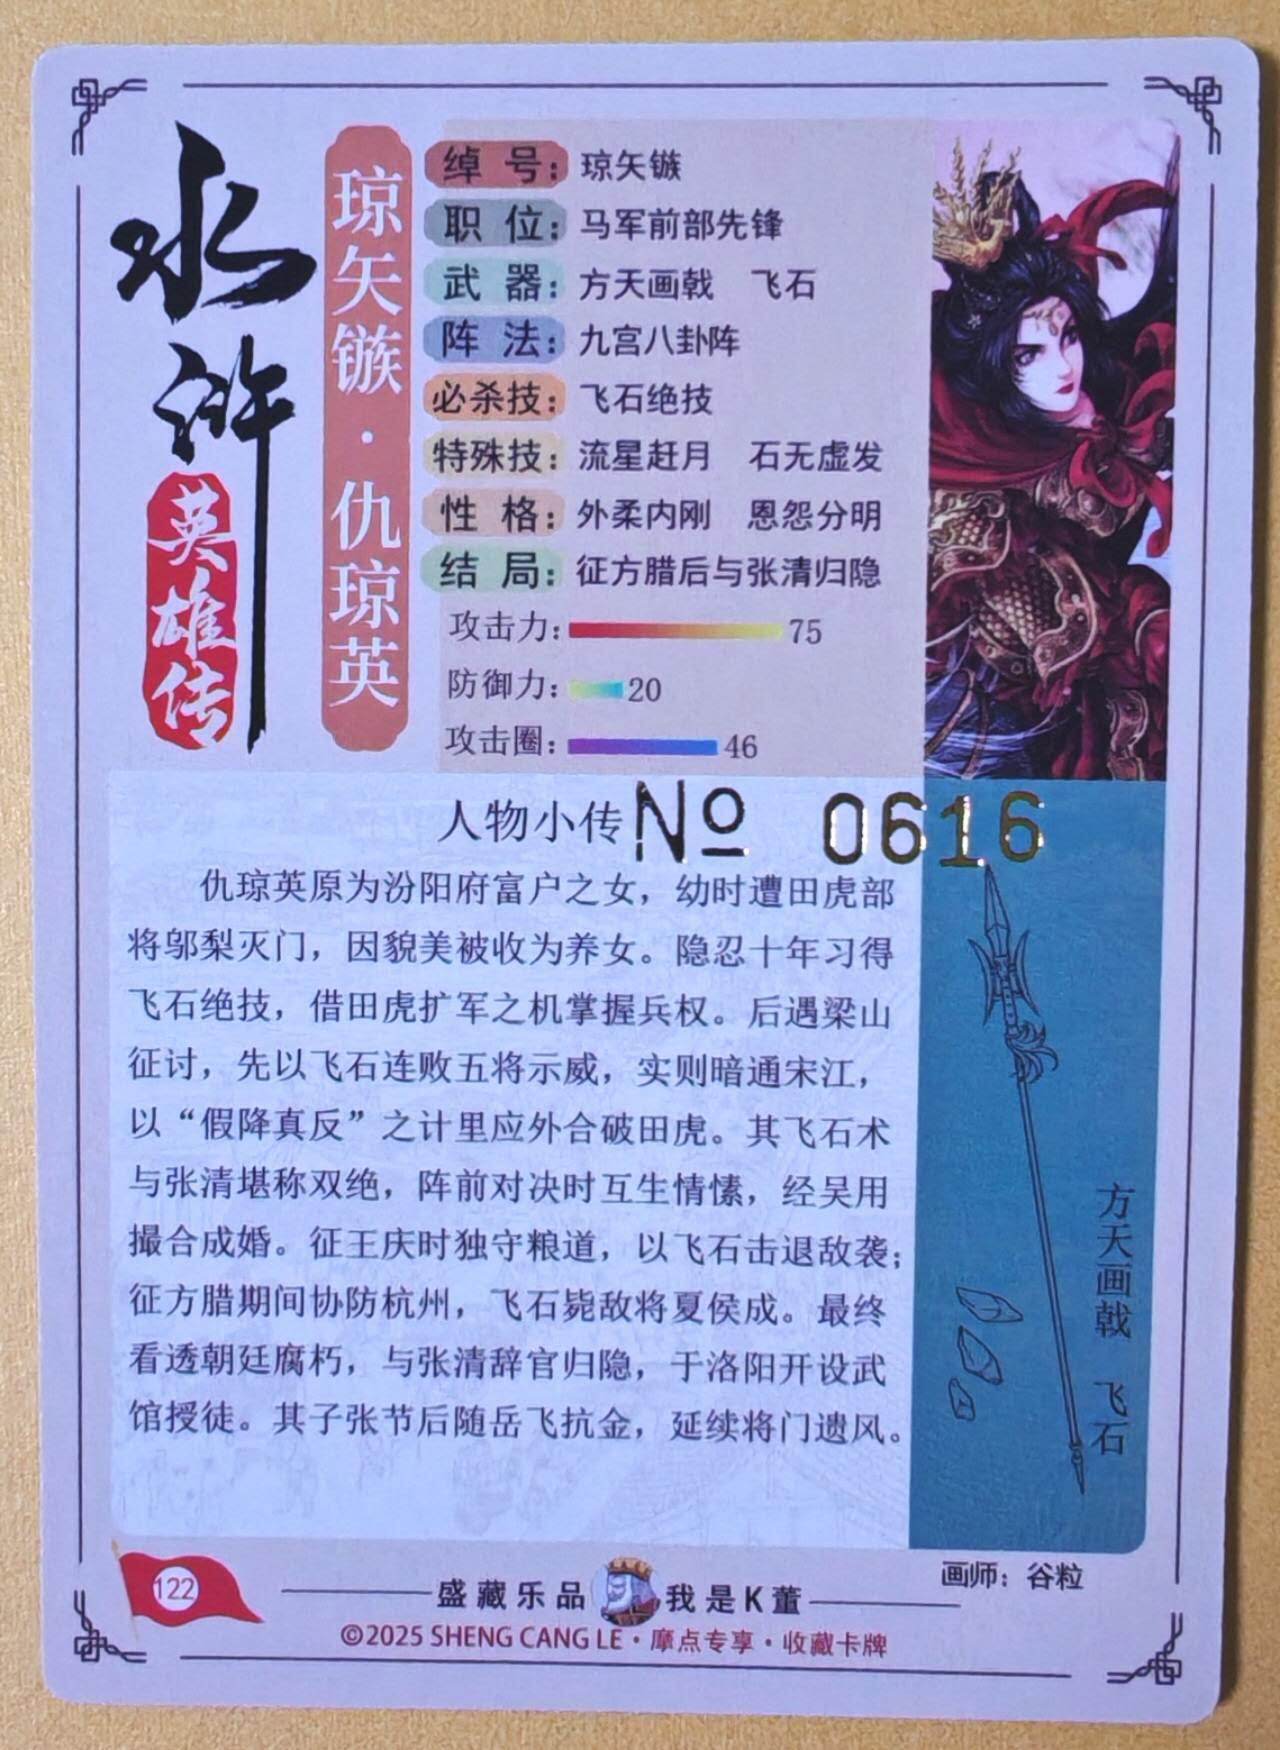 水浒
英雄传
琼矢镞·仇琼英
绰号：琼矢镞
职位：马军前部先锋
武器：方天画戟 飞石
阵法：九宫八卦阵
必杀技：飞石绝技
特殊技：流星赶月 石无虚发
性格：外柔内刚 恩怨分明
结局：征方腊后与张清归隐
攻击力：75
防御力：20
攻击圈：46
人物小传
№ 0616
仇琼英原为汾阳府富户之女，幼时遭田虎部
将邬梨灭门，因貌美被收为养女。隐忍十年习得
飞石绝技，借田虎扩军之机掌握兵权。后遇梁山
征讨，先以飞石连败五将示威，实则暗通宋江，
以“假降真反”之计里应外合破田虎。其飞石术
与张清堪称双绝，阵前对决时互生情愫，经吴用
撮合成婚。征王庆时独守粮道，以飞石击退敌袭；
征方腊期间协防杭州，飞石毙敌将夏侯成。最终
看透朝廷腐朽，与张清辞官归隐，于洛阳开设武
馆授徒。其子张节后随岳飞抗金，延续将门遗风。
方天画戟 飞石
画师：谷粒
122
盛藏乐品 我是K董
©2025 SHENG CANG LE·摩点专享·收藏卡牌